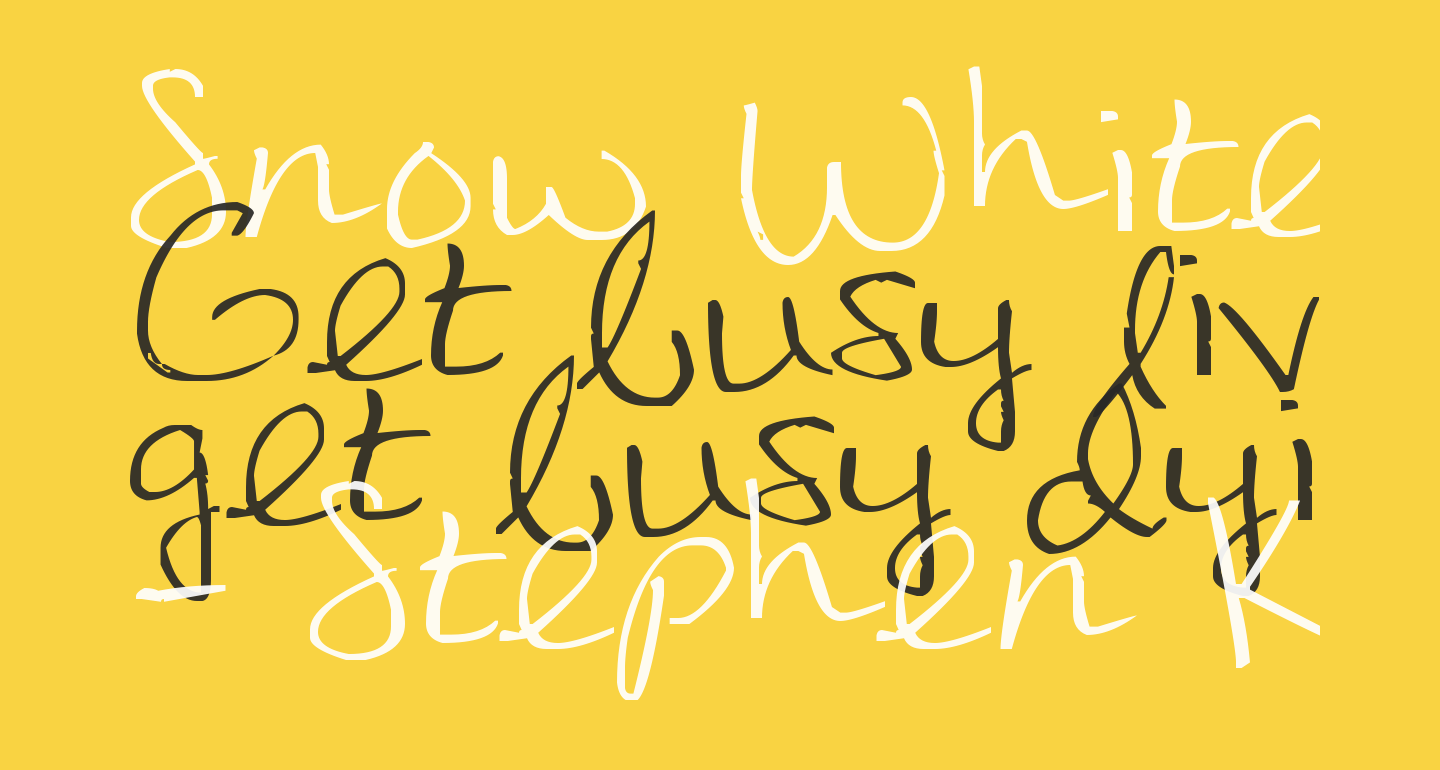 Snow White
Get busy liv
get busy dyi
- Stephen K